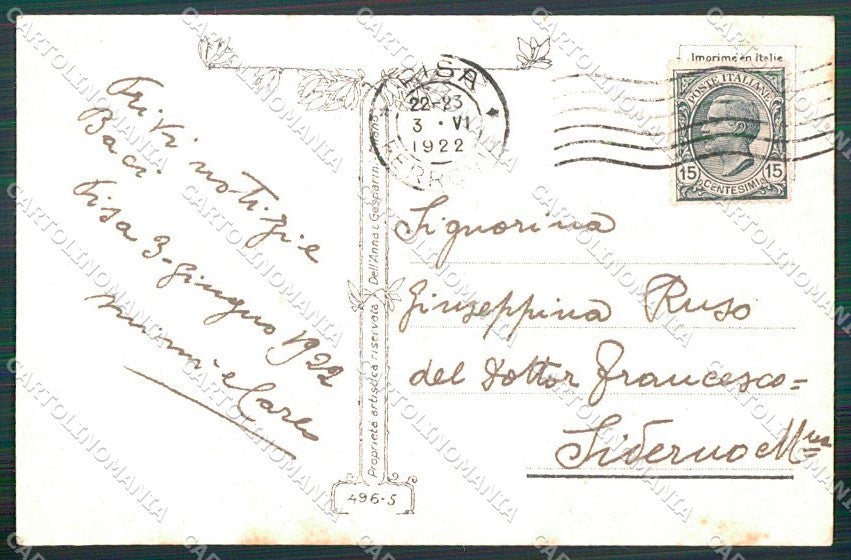 Trivi notizie
Baci.
Pisa 3-giugno 1922
e Carlo
PISA
22-23
3 · VI
1922
FERROVIA
Imprimé en Italie
POSTE ITALIANE
15 CENTESIMI 15
Signorina
Giuseppina Ruso
del Dottor Francesco=
Siderno M
Proprietà artistica riservata Dell'Anna & Gasparini
496-5
CARTOLINOMANIA